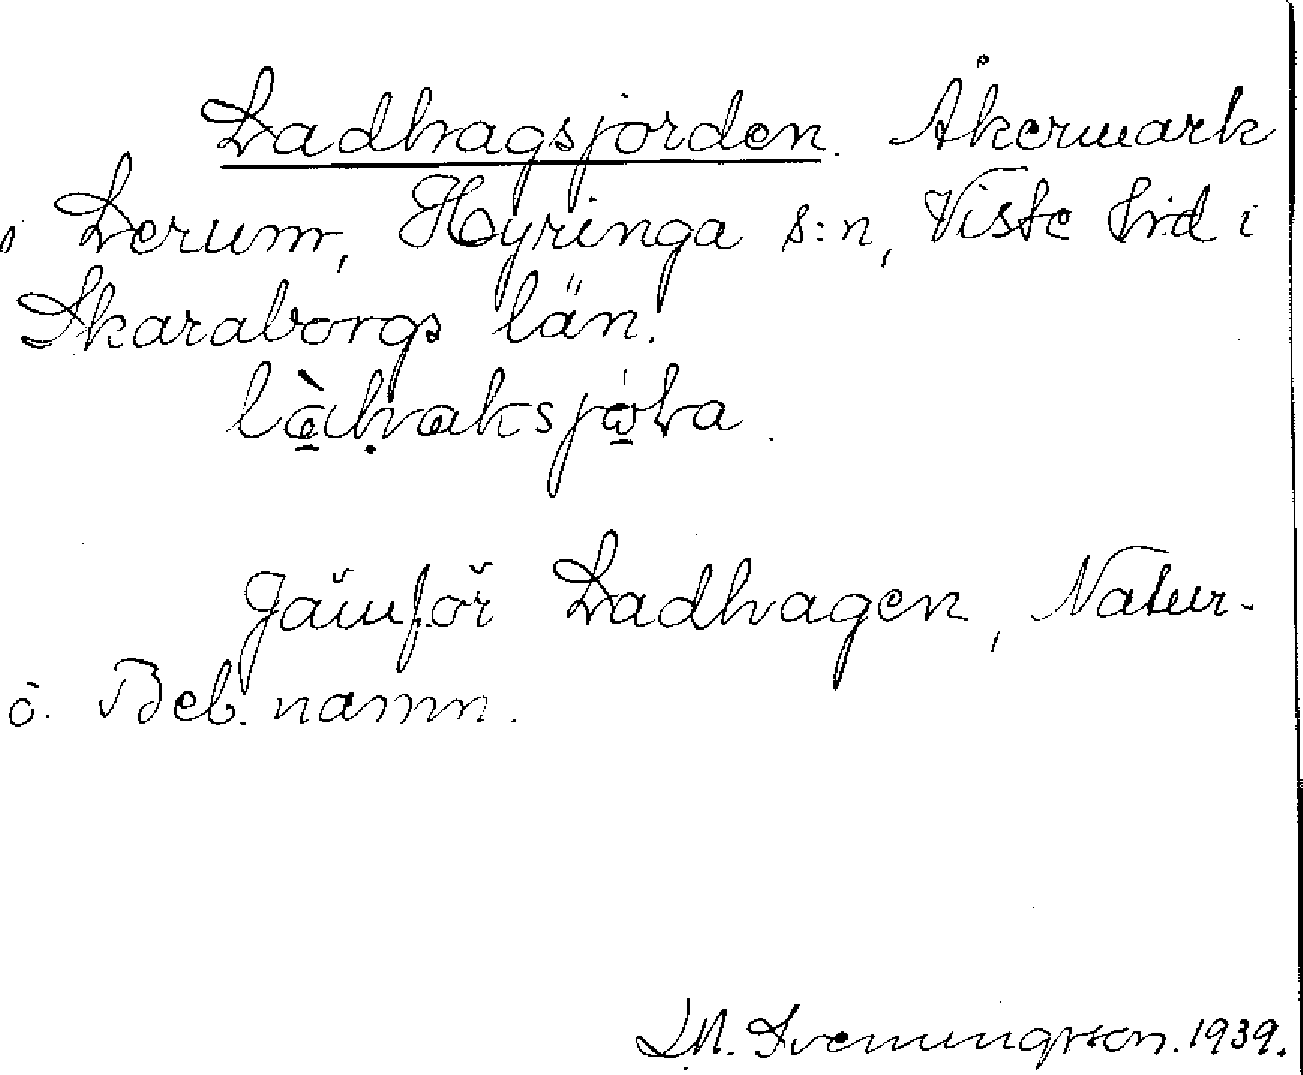 Ladhagsjorden. Åkermark
i Lerum, Hyringa s:n, Viste hrd i
Skaraborgs län.
Jämför Ladhagen, Natur-
o. Beb. namn.
Svenningson. 1939.